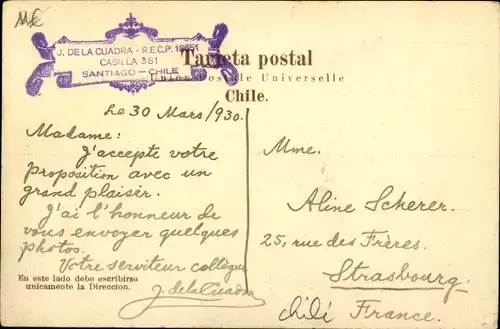 ME
J. DE LA CUADRA - R.E.C.P. 18651
CASILLA 381
SANTIAGO - CHILE
Tarjeta postal
Union Postale Universelle
Chile.
Le 30 Mars/930.
Madame:
J'accepte votre
proposition avec un
grand plaisir.
J'ai l'honneur de
vous envoyer quelques
photos.
Votre serviteur collègue
J. de la Cuadra
En este lado debe escribirse
unicamente la Direccion.
Mme.
Aline Scherer.
25, rue des Frères.
Strasbourg.
chili France.